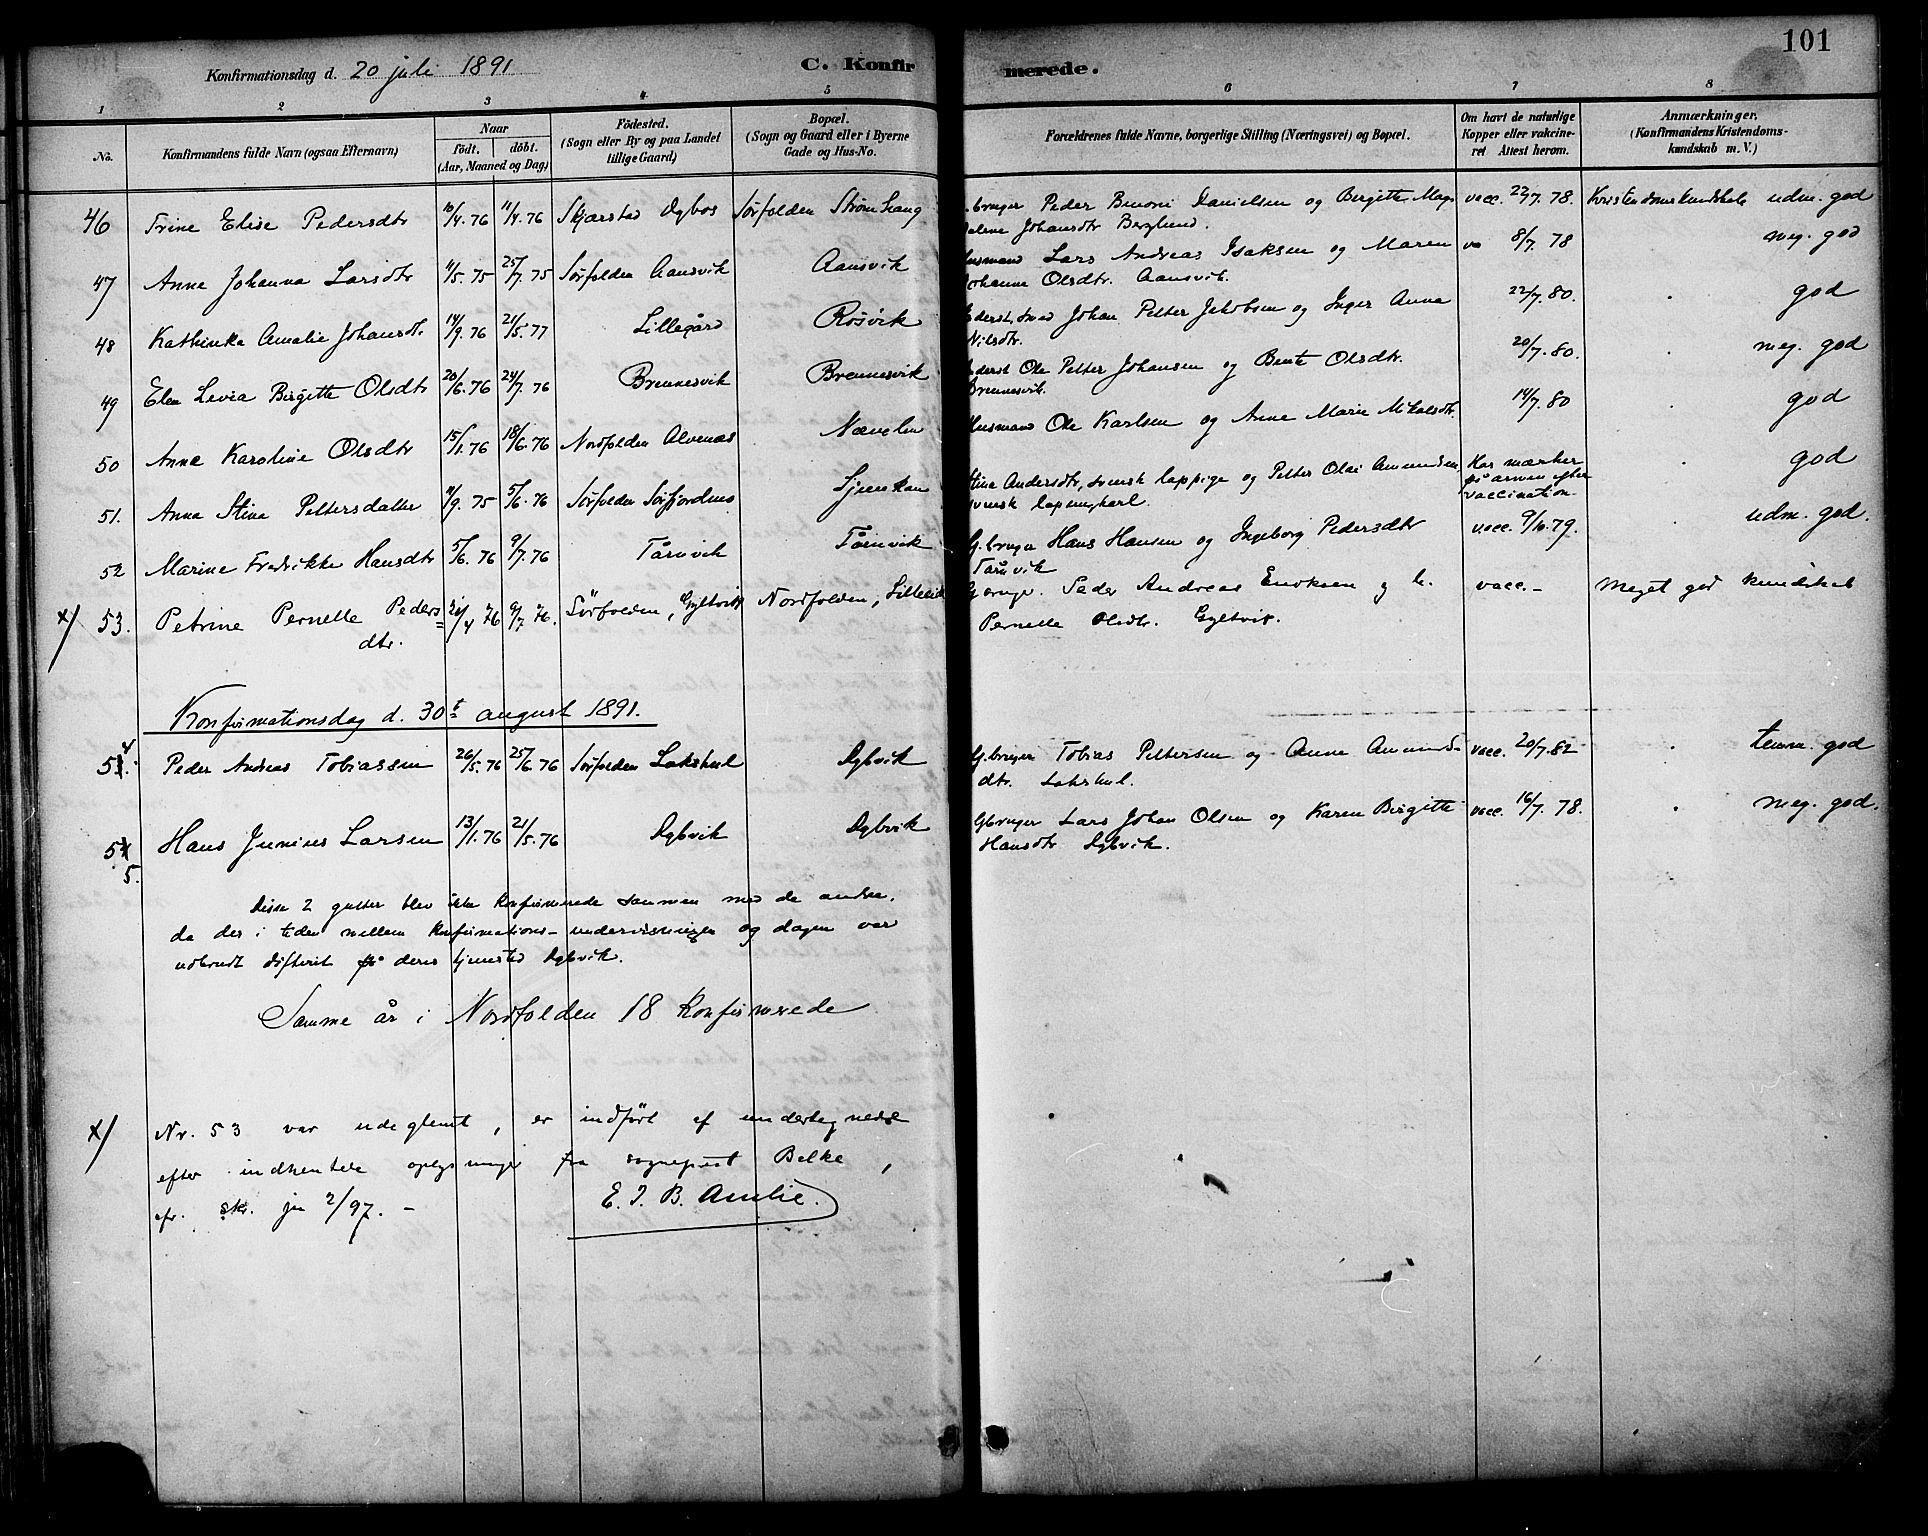 101
Konfirmationsdag d. 20 juli 1891
C. Konfirmerede.
1 2 3 4 5 6 7 8
No.
Konfirmandens fulde Navn (ogsaa Efternavn)
Naar
Födt. döbt.
(Aar, Maaned og Dag)
Födested.
(Sogn eller By og paa Landet
tillige Gaard)
Bopæl.
(Sogn og Gaard eller i Byerne
Gade og Hus-No.
Forældrenes fulde Navne, borgerlige Stilling (Næringsvei) og Bopæl.
Om havt de naturlige
Kopper eller vakcine-
ret Attest herom.
Anmærkninger,
(Konfirmandens Kristendoms-
kundskab m. V.)
46 Trine Elise Pedersdtr 10/4. 76 11/4. 76 Skjærstad Sørfolden Strømhaug
bruger Peder Benoni Danielsen og Birgitte Mag-
dalene Johansdtr Berglund. vacc. 22/7. 78. Kristendomskundskab udm. god
47 Anne Johanna Larsdtr 11/5. 75 25/7. 75 Sørfolden Aansvik Aansvik
Husmand Lars Andreas Isaksen og Maren
Johanne Olsdtr. Aansvik. 8/7. 78 meg. god
48 Kathinka Amalie Johansdtr. 14/9. 76 21/5. 77 Lillegård Røsvik
Johan Petter Jakobsen og Inger Anna
Nilsdtr. 22/7. 80. god
49 Elen Levia Birgitte Olsdtr 20/6. 76 24/7. 76 Brennesvik Brennesvik
Ole Petter Johansen og Bente Olsdtr.
Brennesvik. 20/7. 80. meg. god
50 Anne Karoline Olsdtr 15/1. 76 18/6. 76 Nordfolden Alvenæs Nævelsn
Husmand Ole Karlsen og Anne Marie Mikalsdtr. 14/7. 80 god
51. Anna Stina Pettersdatter 11/9. 75 5/6. 76 Sørfolden Sørfjordmo
Stina Andersdtr, svensk lappige og Petter Olai Amundsen,
svensk lapungkarl. Har mærker
på armen efter
vaccination. god
52 Marine Fredrikke Hansdtr 5/6. 76 9/7. 76 Tårnvik Tårnvik
G.bruger Hans Hansen og Ingeborg Pedersdtr
Tårnvik vacc. 9/10. 79. udm. god.
x) 53. Petrine Pernelle Peders=
dtr. 21/4 76 9/7 76. Sörfolden, Gyltvik Nordfolden,
Peder Andreas Enoksen og h.
Pernelle Olsdtr. Gyltvik. vacc.- Meget god kundskab
Konfirmationsdag d. 30t august 1891.
54. Peder Andreas Tobiassen 26/5. 76 25/6. 76 Sørfolden Lakshul Dybvik
G.bruger Tobias Pettersen og Anne Amunds-
dtr. Lakshul. vacc. 20/7. 82 temm. god
55. Hans Junius Larsen 13/1. 76 21/5. 76 Dybvik Dybvik
Gbruger Lars Johan Olsen og Karen Birgitte
Hansdtr Dybvik. vacc. 16/7. 78. meg. god.
Disse 2 gutter blev ikke konfirmerede sammen med de andre.
da der i tiden mellem konfirmations-undervisningen og dagen var
udbrudt difterit på deres tjenested Dybvik.
Samme år i Nordfolden 18 Konfirmerede
x) Nr. 53 var udeglemt, er indført af undertegnede
efter indhentede oplysninger fra sogneprest Balke,
cfr. skr. jn 2/97. -
E. I. B. Amlie.